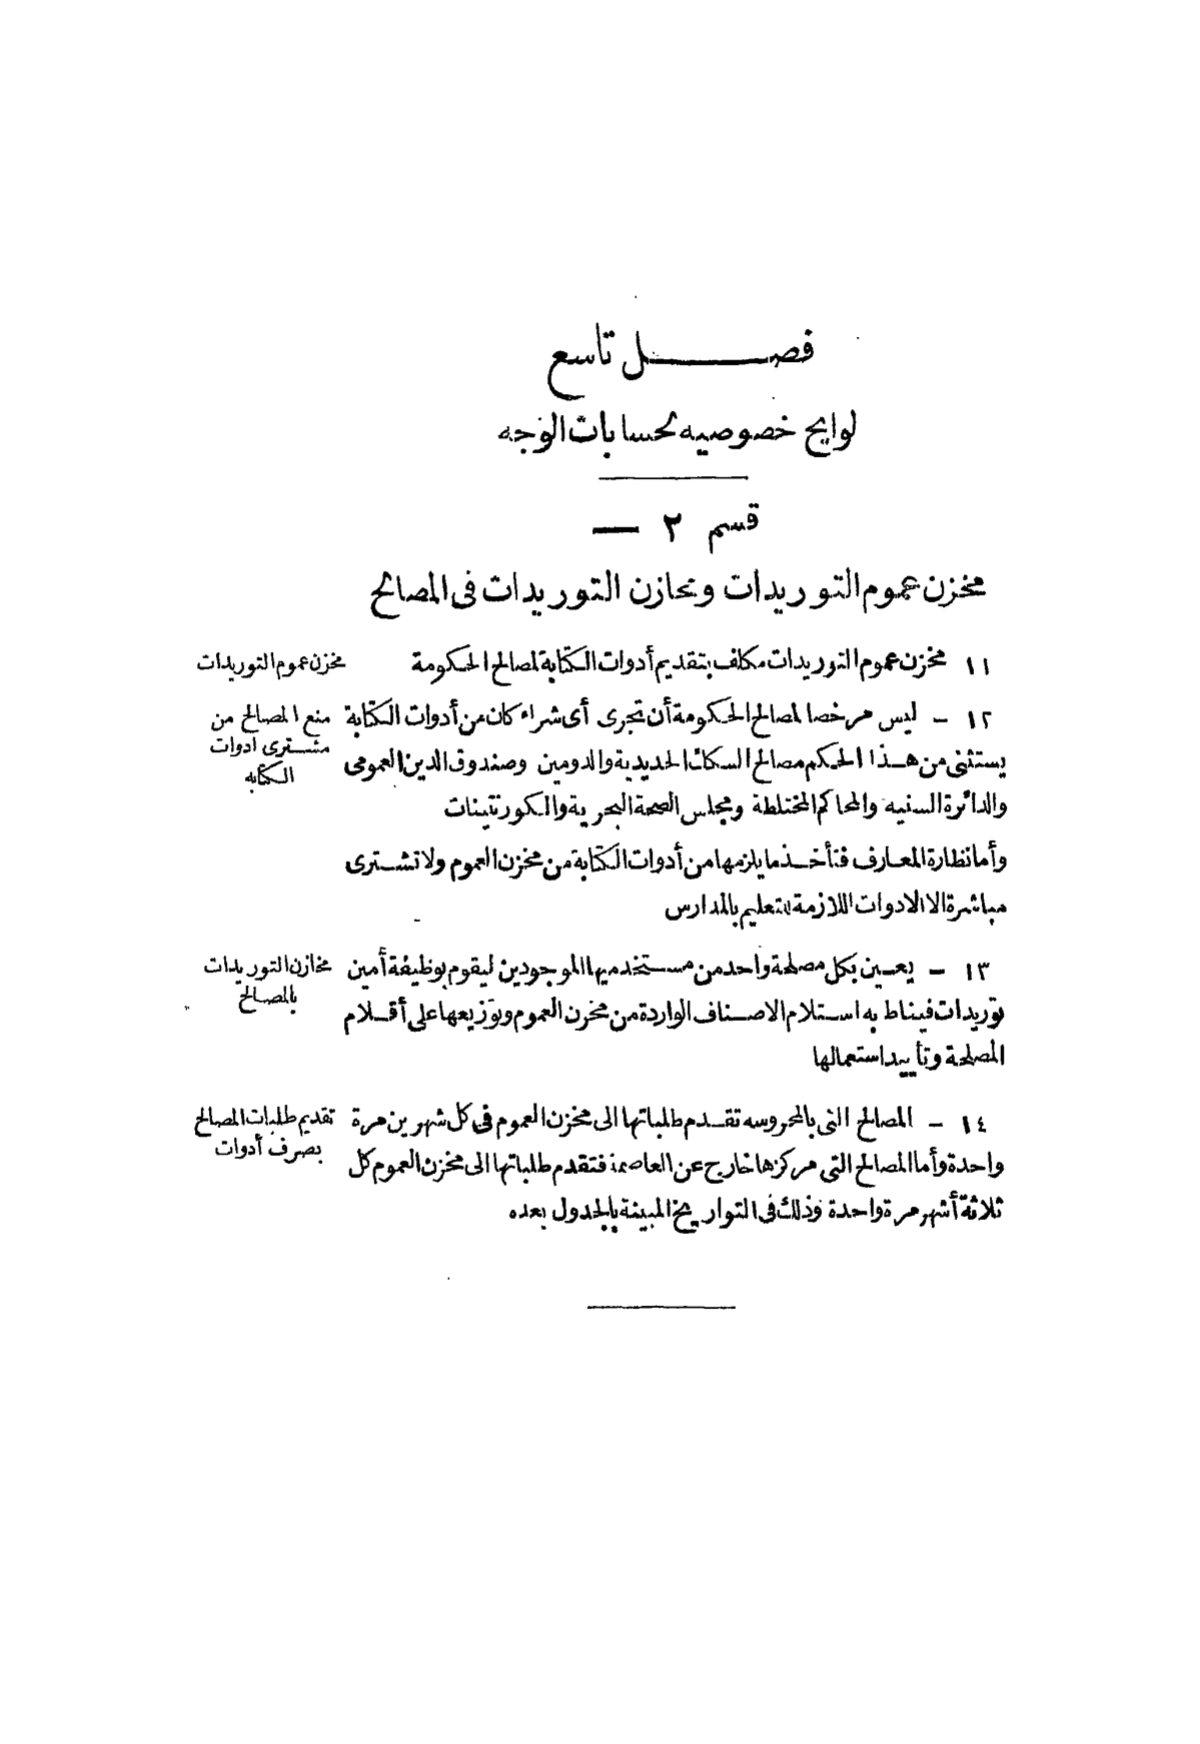 فصل تاسع
لوايح خصوصيه لحسابات الوجه
قسم ٢ —
مخزن عموم التوريدات ومخازن التوريدات فى المصالح
١١ مخزن عموم التوريدات مكلف بتقديم أدوات الكتابة لمصالح الحكومة
مخزن عموم التوريدات
١٢ – ليس مرخصا لمصالح الحكومة أن تجرى أى شراء كان من أدوات الكتابة
يستثنى من هذا الحكم مصالح السكك الحديدية والدومين وصندوق الدين العمومى
والدائرة السنيه والمحاكم المختلطة ومجلس الصحة البحرية والكورنتينات
منع المصالح من
مشترى ادوات
الكتابه
وأما نظارة المعارف فتأخذ ما يلزمها من أدوات الكتابة من مخزن العموم ولا تشترى
مباشرة الا الادوات اللازمة للتعليم بالمدارس
١٣ – يعين بكل مصلحة واحد من مستخدميها الموجودين ليقوم بوظيفة أمين
توريدات فيناط به استلام الاصناف الواردة من مخزن العموم وتوزيعها على أقلام
المصلحة وتأييد استعمالها
مخازن التوريدات
بالمصالح
١٤ – المصالح التى بالمحروسه تقدم طلباتها الى مخزن العموم فى كل شهرين مرة
واحدة وأما المصالح التى مركزها خارج عن العاصمة فتقدم طلباتها الى مخزن العموم كل
ثلاثة أشهر مرة واحدة وذلك فى التواريخ المبينة بالجدول بعده
تقديم طلبات المصالح
بصرف أدوات